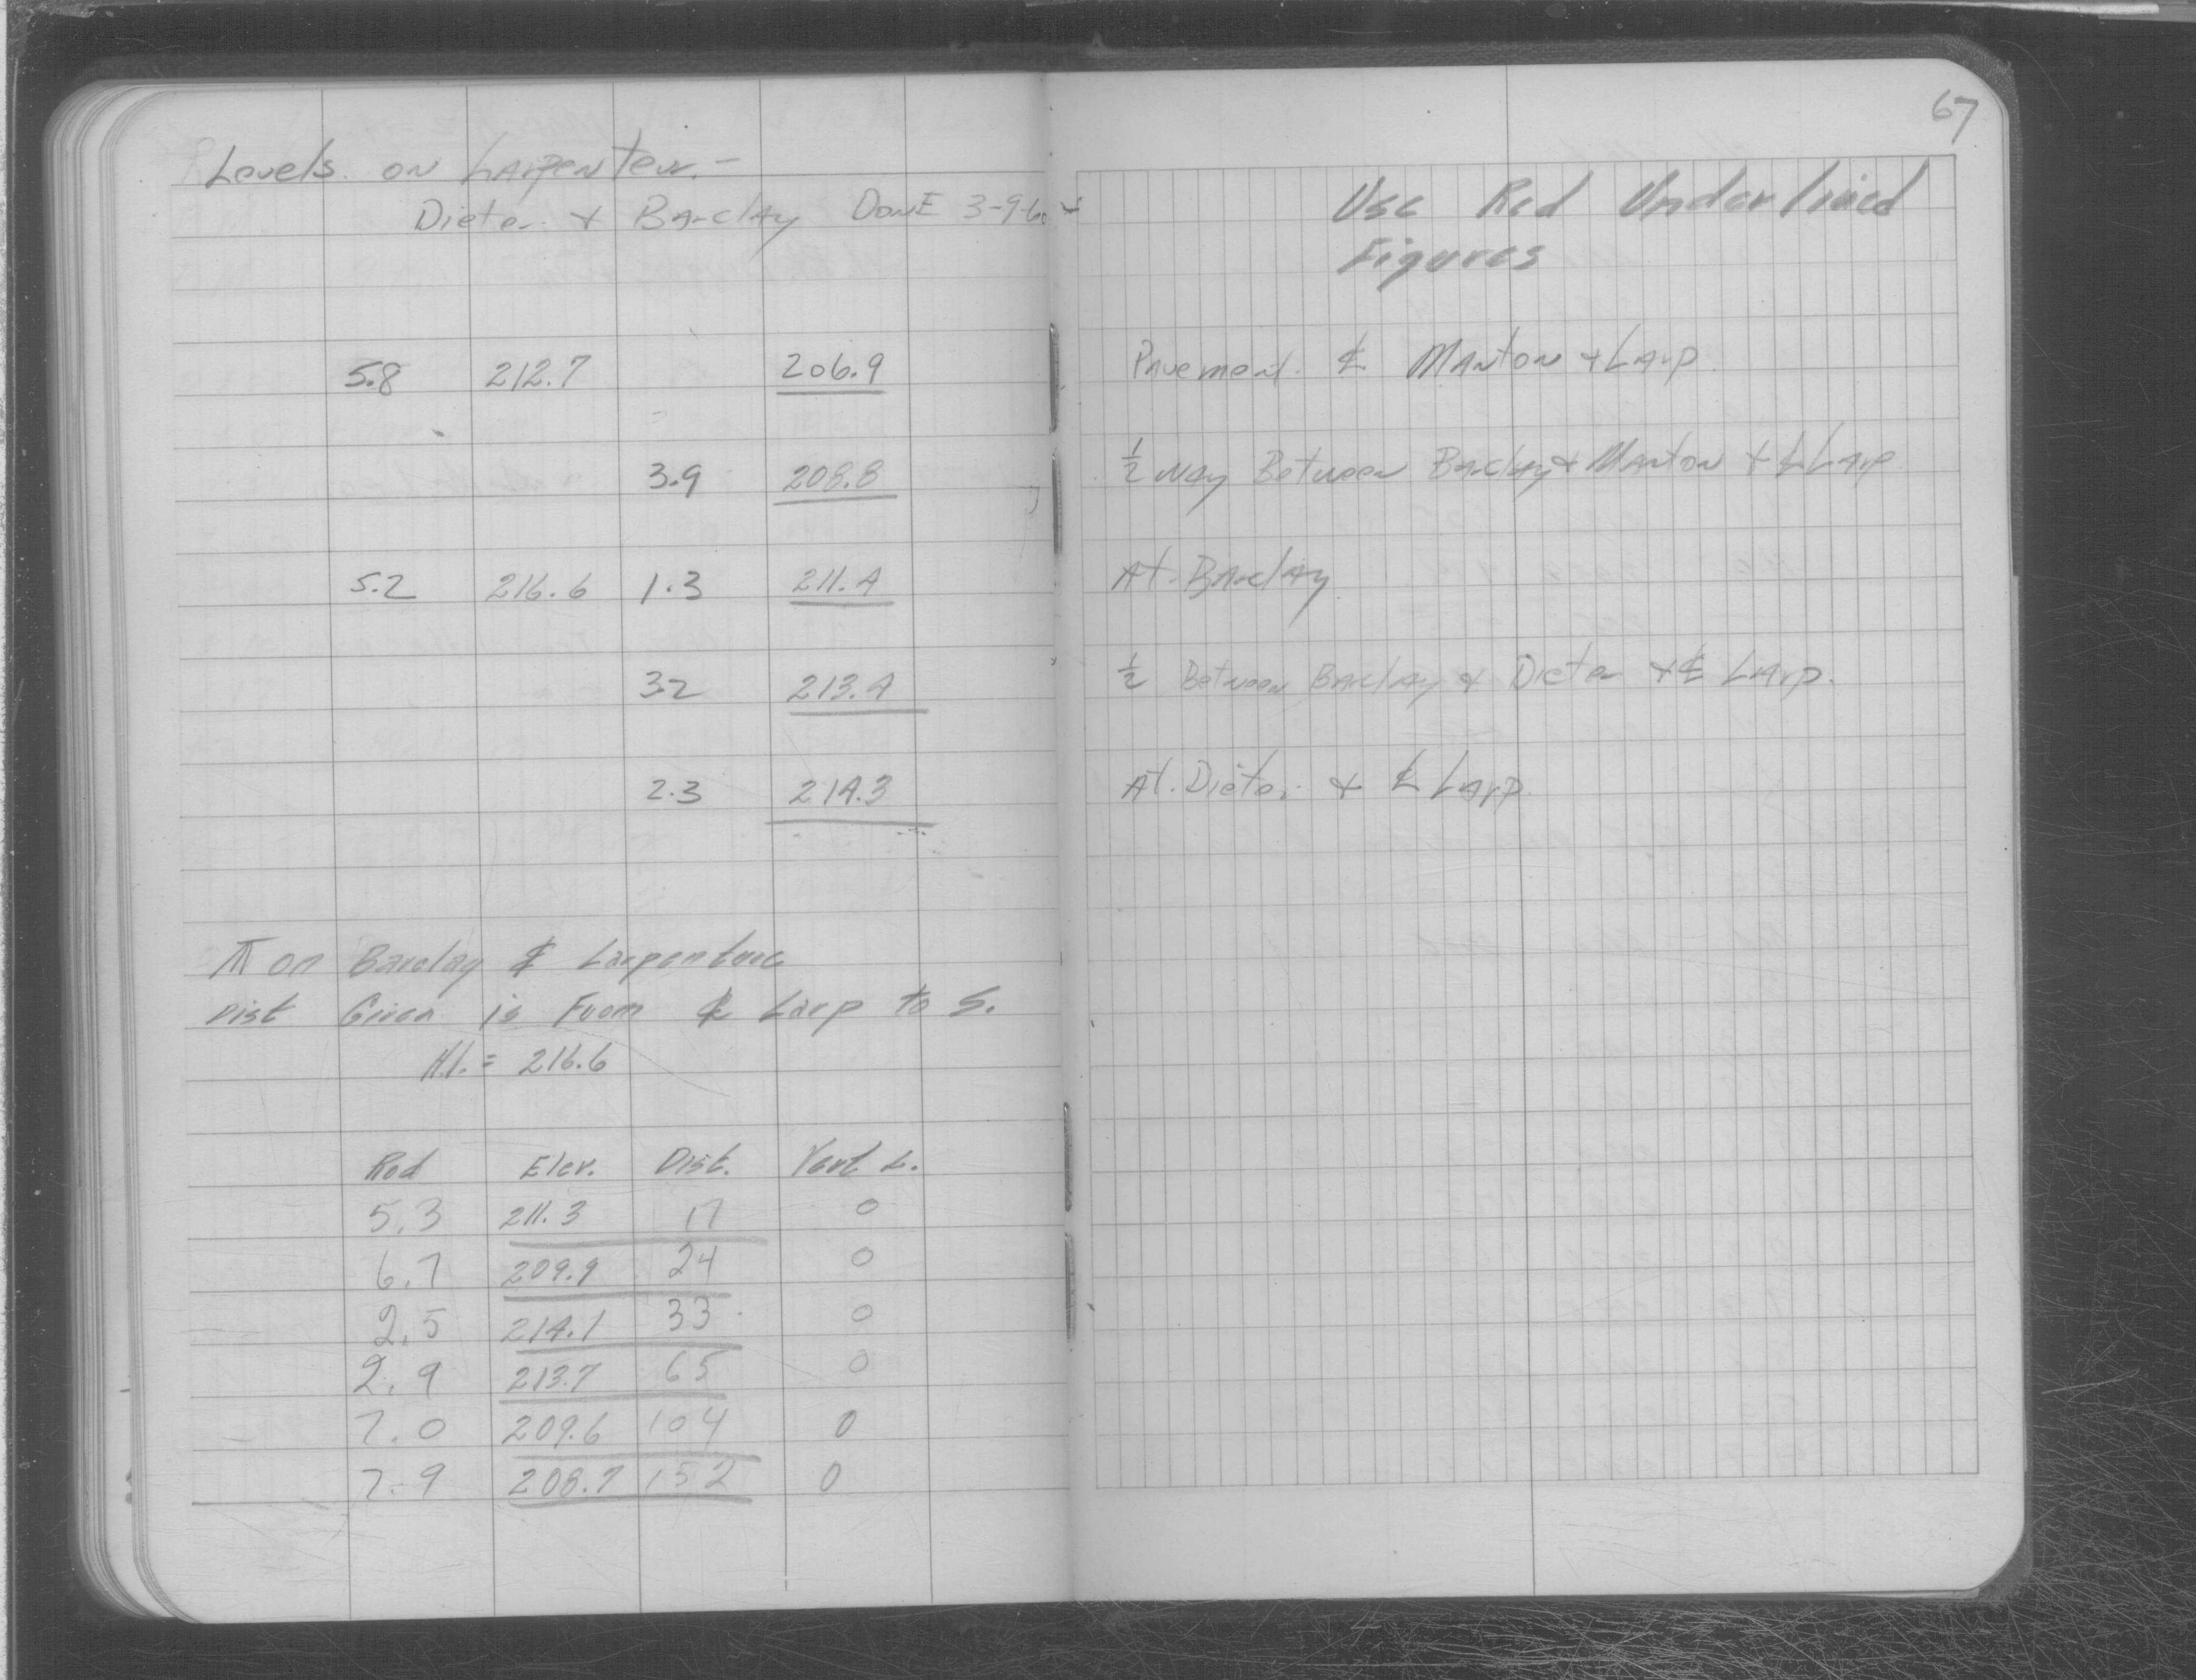 67
Levels on Larpenteur. -
Dieter & Barclay Done 3-9-60
Use Red Underlined
Figures
5.8 212.7 206.9 Pavement ℄ Manton & Larp.
3.9 208.8 ½ way Between Barclay & Manton & ℄ Larp
5.2 216.6 1.3 211.4 At. Barclay
3.2 213.4 ½ Between Barclay & Dieter & ℄ Larp.
2.3 214.3 At. Dieter & ℄ Larp.
⊼ on Barclay ℄ Larpenteur
Dist Given is From ℄ Larp to S.
H.I. = 216.6
Rod Elev. Dist. Vert ∠.
5.3 211.3 17 0
6.7 209.9 24 0
2.5 214.1 33 0
2.9 213.7 65 0
7.0 209.6 104 0
7.9 208.7 152 0